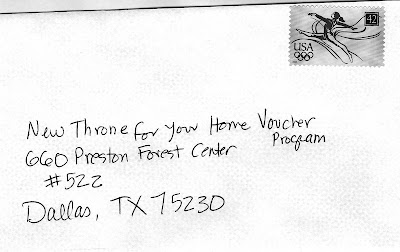 42
USA
New Throne for your Home Voucher
Program
660 Preston Forest Center
#522
Dallas, TX 75230